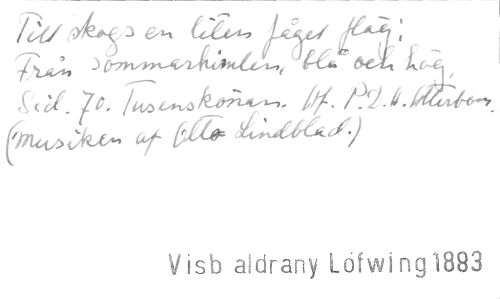 Till skogs en liten fågel flög;
Från sommarhimlen, blå och hög,
Sid. 70. Tusenskönan. Utg. P. A. Otterbom.
(Musiken af Otto Lindblad.)
Visb aldrany Löfwing 1883